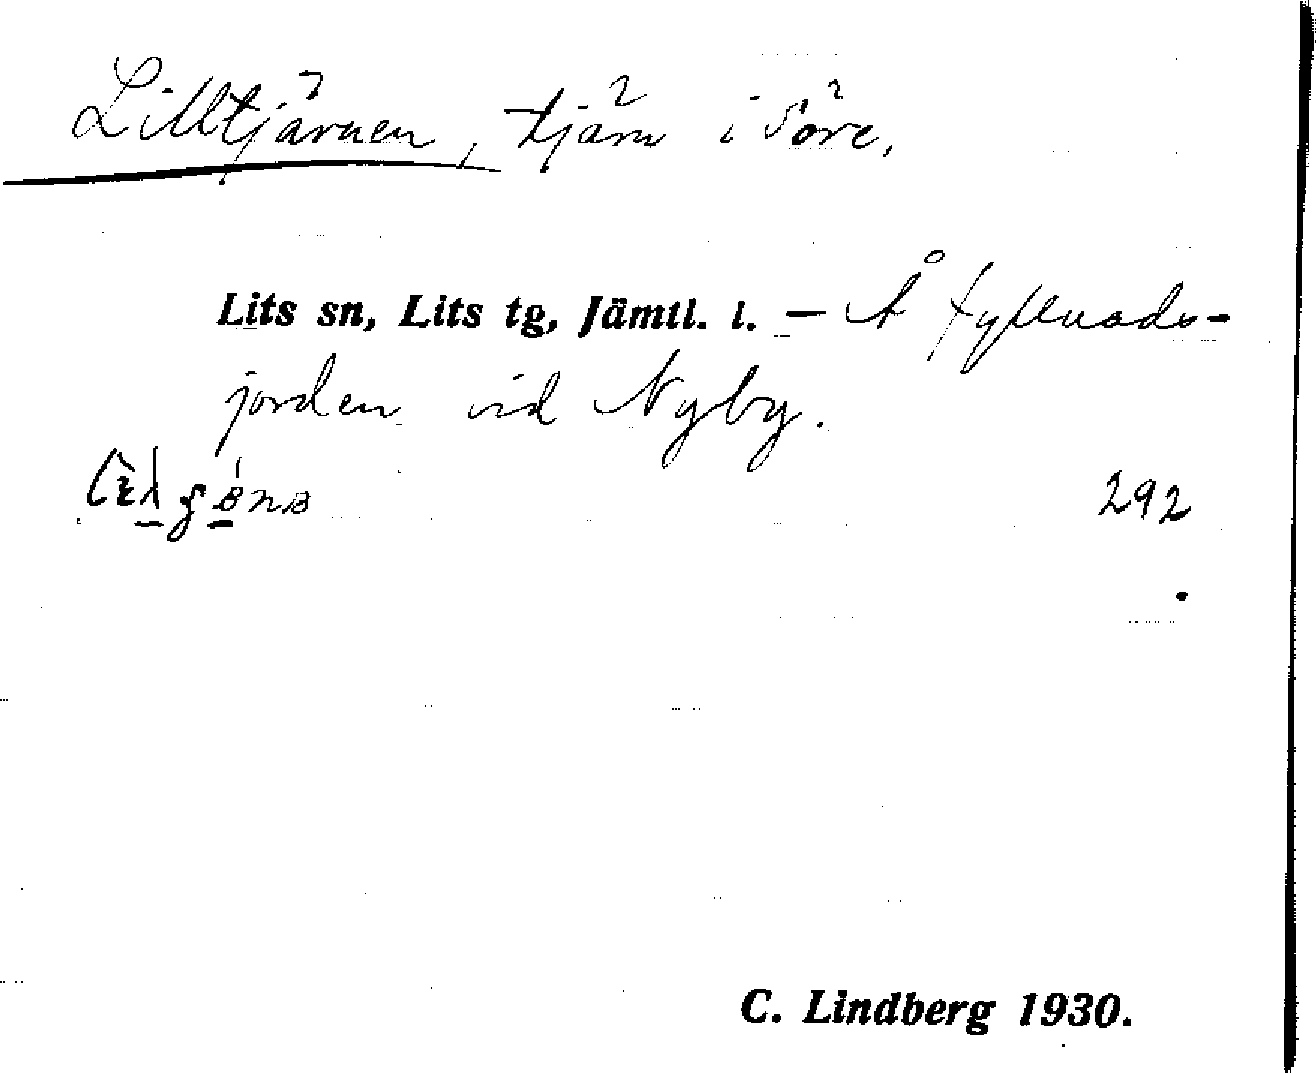 Lilltjärnen, tjärn i Söre.
Lits sn, Lits tg, Jämtl. l. – Å fyllnads-
jorden vid Nyby.
292
C. Lindberg 1930.